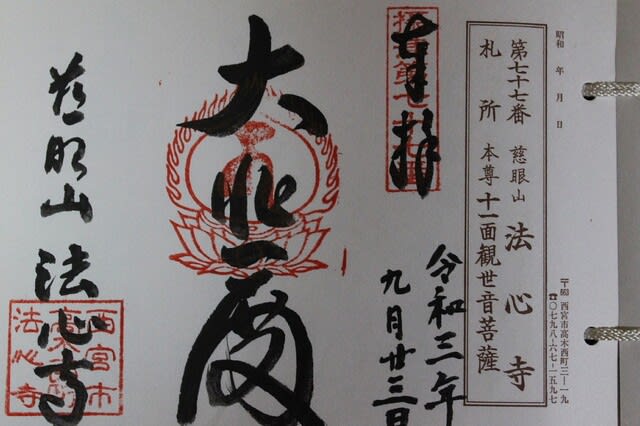 昭和 年 月 日
〒663 西宮市高木西町三―一九
☎〇七九八-六七-一五九七
第七十七番 慈眼山 法心寺
札所 本尊 十一面観世音菩薩
奉拝
令和三年
九月廿三日
大悲殿
慈眼山 法心寺
西宮市
法心寺